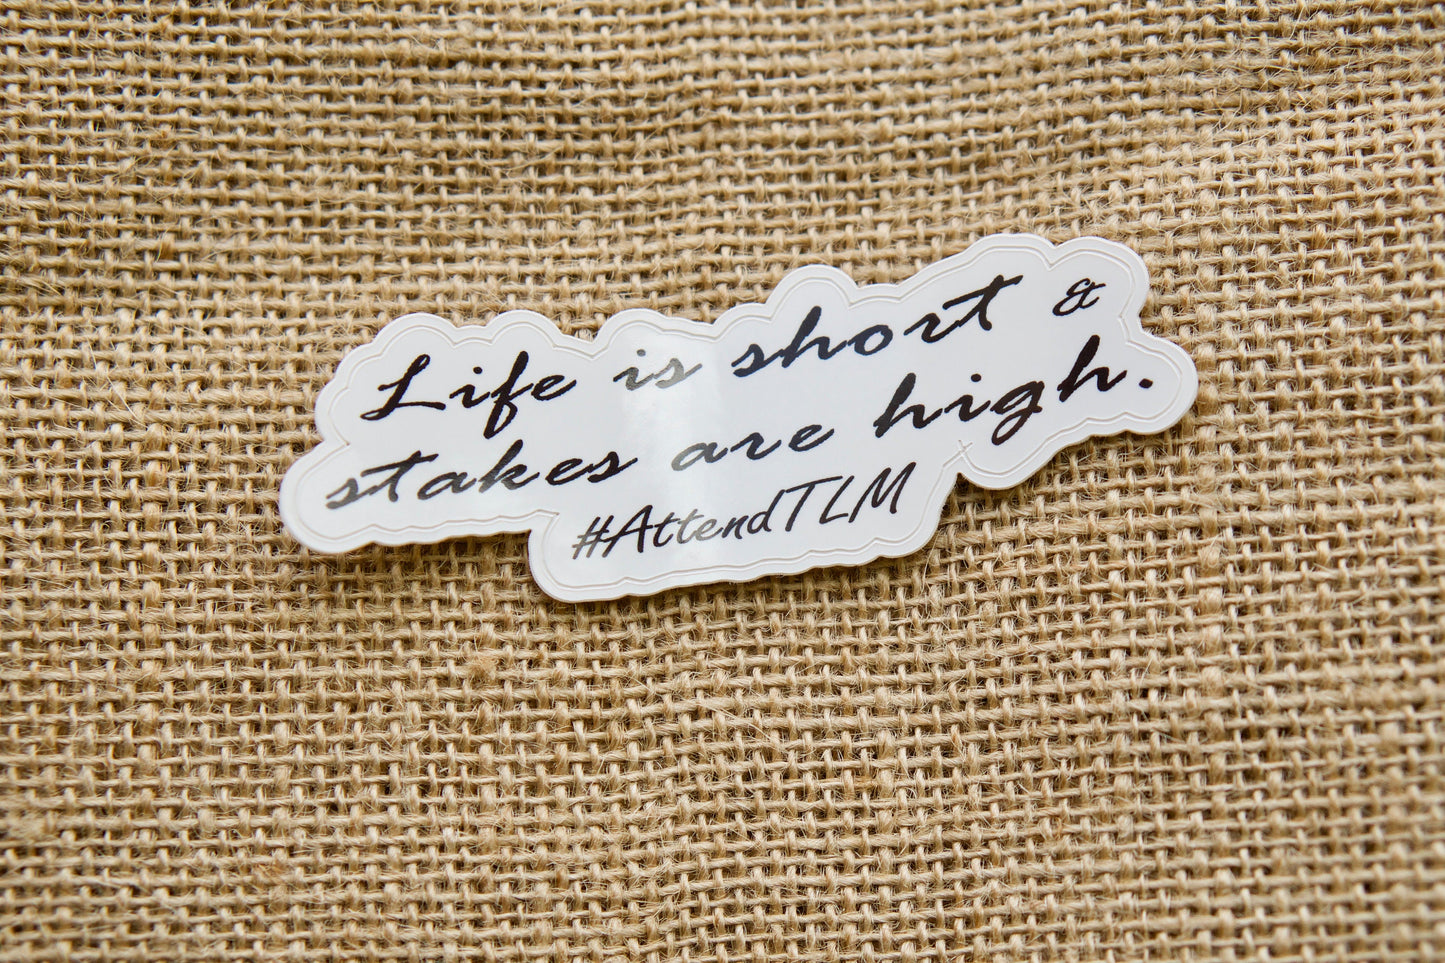 Life is short &
stakes are high.
#AttendTLM